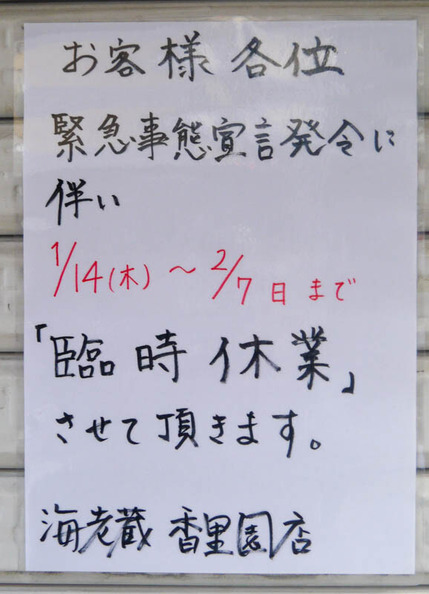 お客様各位
緊急事態宣言発令に
伴い
1/14(木)～2/7日まで
「臨時休業」
させて頂きます。
海老蔵 香里園店